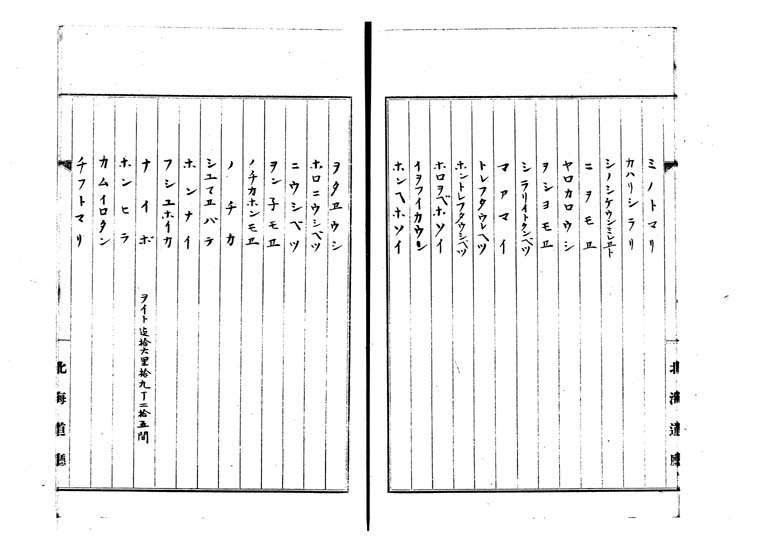 ミノトマリ
カハリシラリ
シノシケウシミレヱト
ニヲモヱ
ヤロカロウシ
ヲショモヱ
シラリイトクンベツ
マアマイ
トレフタウレヘツ
ホントレフタウシベツ
ホロヲベホソイ
イヲフイカウシ
ホンヘホソイ
北海道廳
ヲタヱウシ
ホロニウシベツ
ニウシベツ
ヲン子モヱ
ノチカホンモヱ
ノチカ
シユマヱバテ
ホンナイ
フシユホイカ
ナイボ ヲイト迄拾六里拾九丁二拾五間
ホンヒラ
カムイロタン
チフトマリ
北海道廳